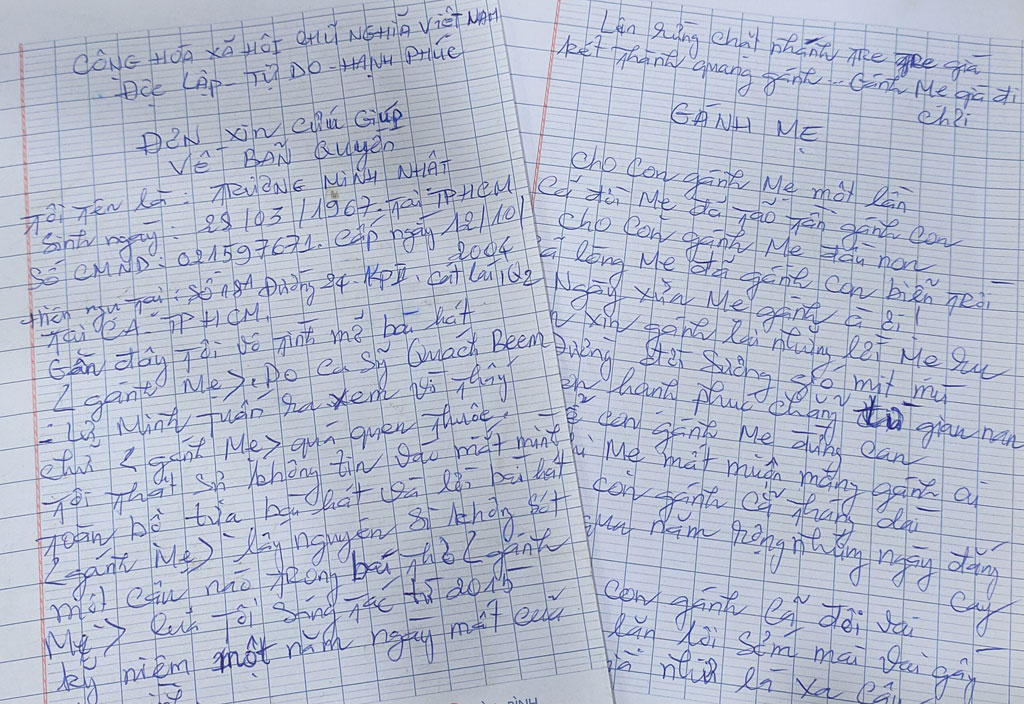 CÔNG HÒA XÃ HỘI CHỦ NGHĨA VIỆT NAM
ĐỘC LẬP - TỰ DO - HẠNH PHÚC
ĐƠN XIN CỨU GIÚP
VỀ BẢN QUYỀN
TÔI TÊN LÀ: TRƯƠNG MINH NHẬT
Sinh ngày: 28/03/1967 Tại TPHCM
Số CMND: 021597671. Cấp ngày 12/10/
2004
Tại CA-TPHCM.
Gần đây Tôi vô tình mở bài hát
<gánh Mẹ>. Do ca sỹ Quách Beem
- Lý Minh Tuấn ra xem vì thấy
chữ <gánh Mẹ> quá quen thuộc.
Tôi thật sự không tin vào mắt mình
Toàn bộ tựa bài hát và lời bài hát
<gánh Mẹ> lấy nguyên si không sót
một câu nào trong bài thơ <gánh
Mẹ> của Tôi sáng tác từ 2015
kỷ niệm một năm ngày mất của
Lên rừng chặt nhánh tre già
kết thành quang gánh... Gánh Mẹ già đi
chơi
GÁNH MẸ
Cho con gánh Mẹ một lần
Cả đời Mẹ đã tảo tần gánh con
Cho con gánh Mẹ đầu non
lòng Mẹ đã gánh con biển trời
Ngày xưa Mẹ gánh à ơi!
xin gánh lại những lời Mẹ ru
Đường đời sương gió mịt mù
hạnh phúc chẳng từ gian nan
con gánh Mẹ đừng can
Mẹ mất muốn mong gánh ai
con gánh cả tháng dài
qua năm rộng những ngày đắng
cay
con gánh cả đôi vai
lăn lội sớm mai vai gầy
như lá xa cây